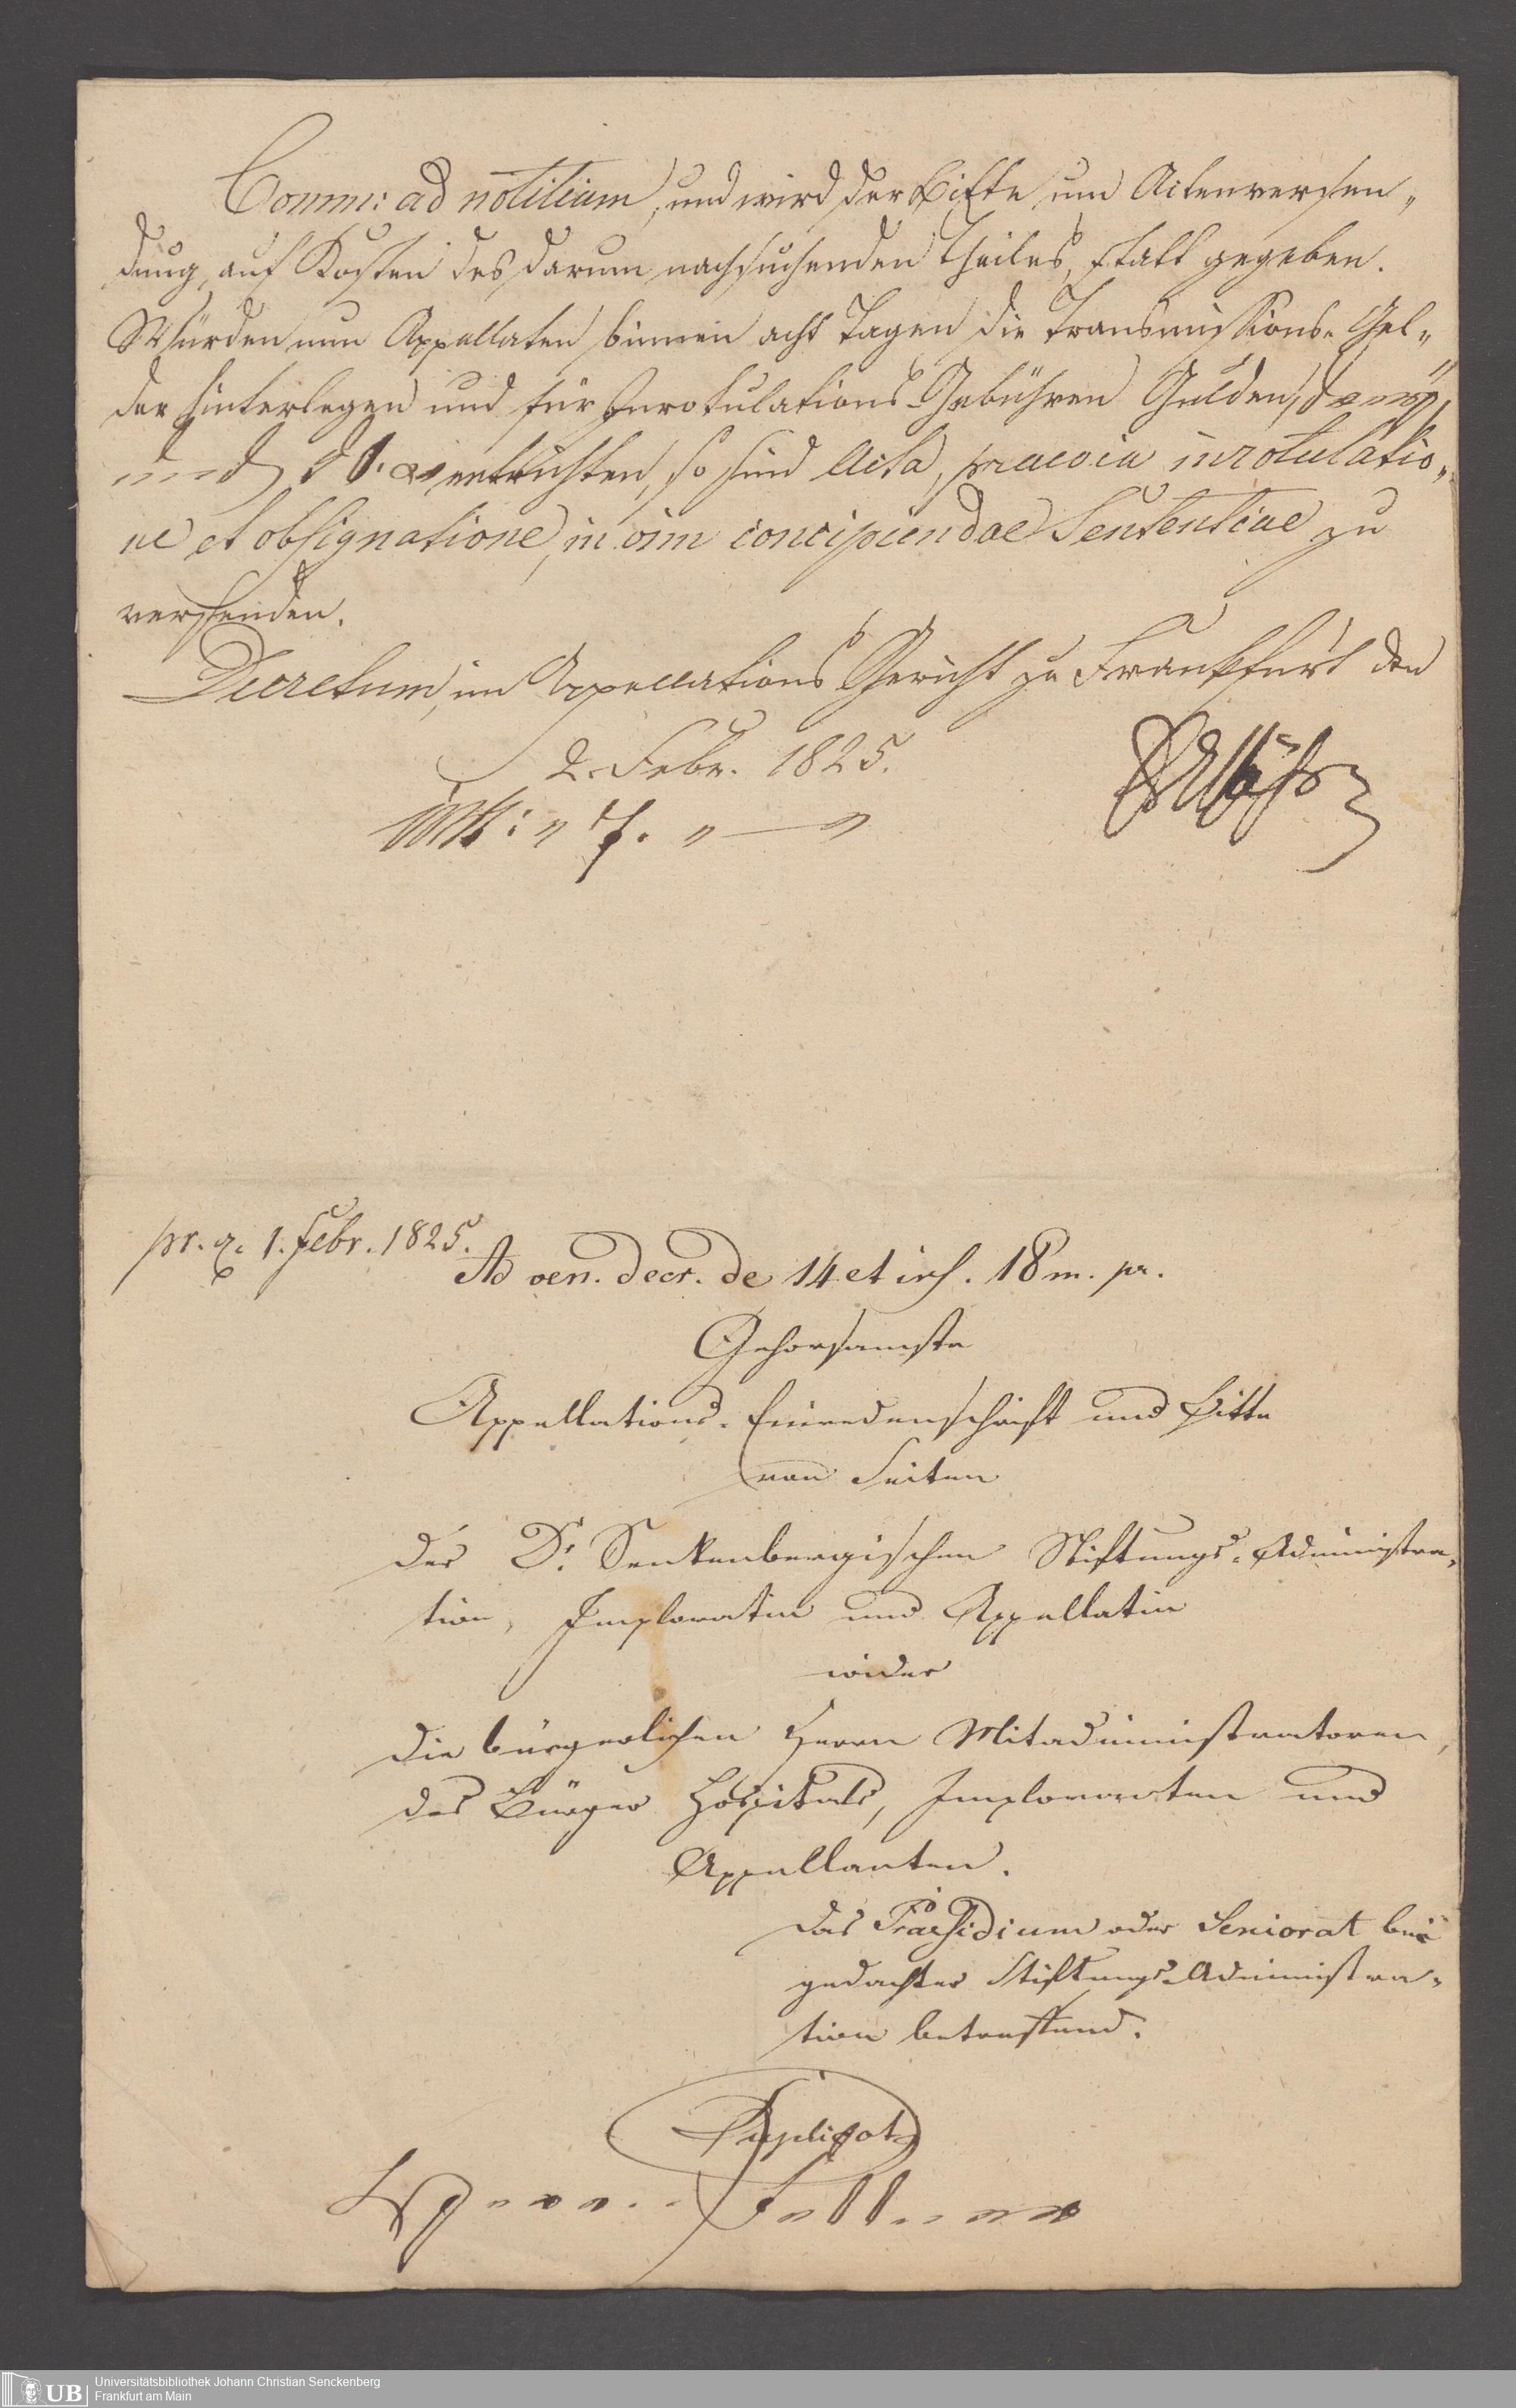 Comm: ad notitiam, und wird der Bitte um Actenversen„
dung, auf Kosten des darum nachsuchenden Theiles, statt gegeben.
Würden nun Appellaten binnen acht Tagen die Transmissions-Gel„
der hinterlegen und für Inrotulations-Gebühren Gulden
entrichten, so sind Acta, praevia inrotulatio„
ne et obsignatione, in oim concipiendae Sententiae zu
versenden.
Decretum, im Appellations Gericht zu Frankfurt den
2. Febr. 1825.
pr. 1. Febr. 1825.
Ad ven. decr. de 14 et ins. 18 m. pr.
Gehorsamste
Appellations-Einredenschrift und Bitte
von Seiten
der Dr. Senkenbergischen Stiftungs-Administra„
tion, Implorantin und Appellatin
wider
die bürgerlichen Herrn Mitadministratoren,
des Bürger Hospitals, Imploraten und
Appellanten.
das Praesidium oder Seniorat bei
gedachter Stiftungs-Administra„
tion betreffend.
Duplicat
Universitätsbibliothek Johann Christian Senckenberg
UB Frankfurt am Main